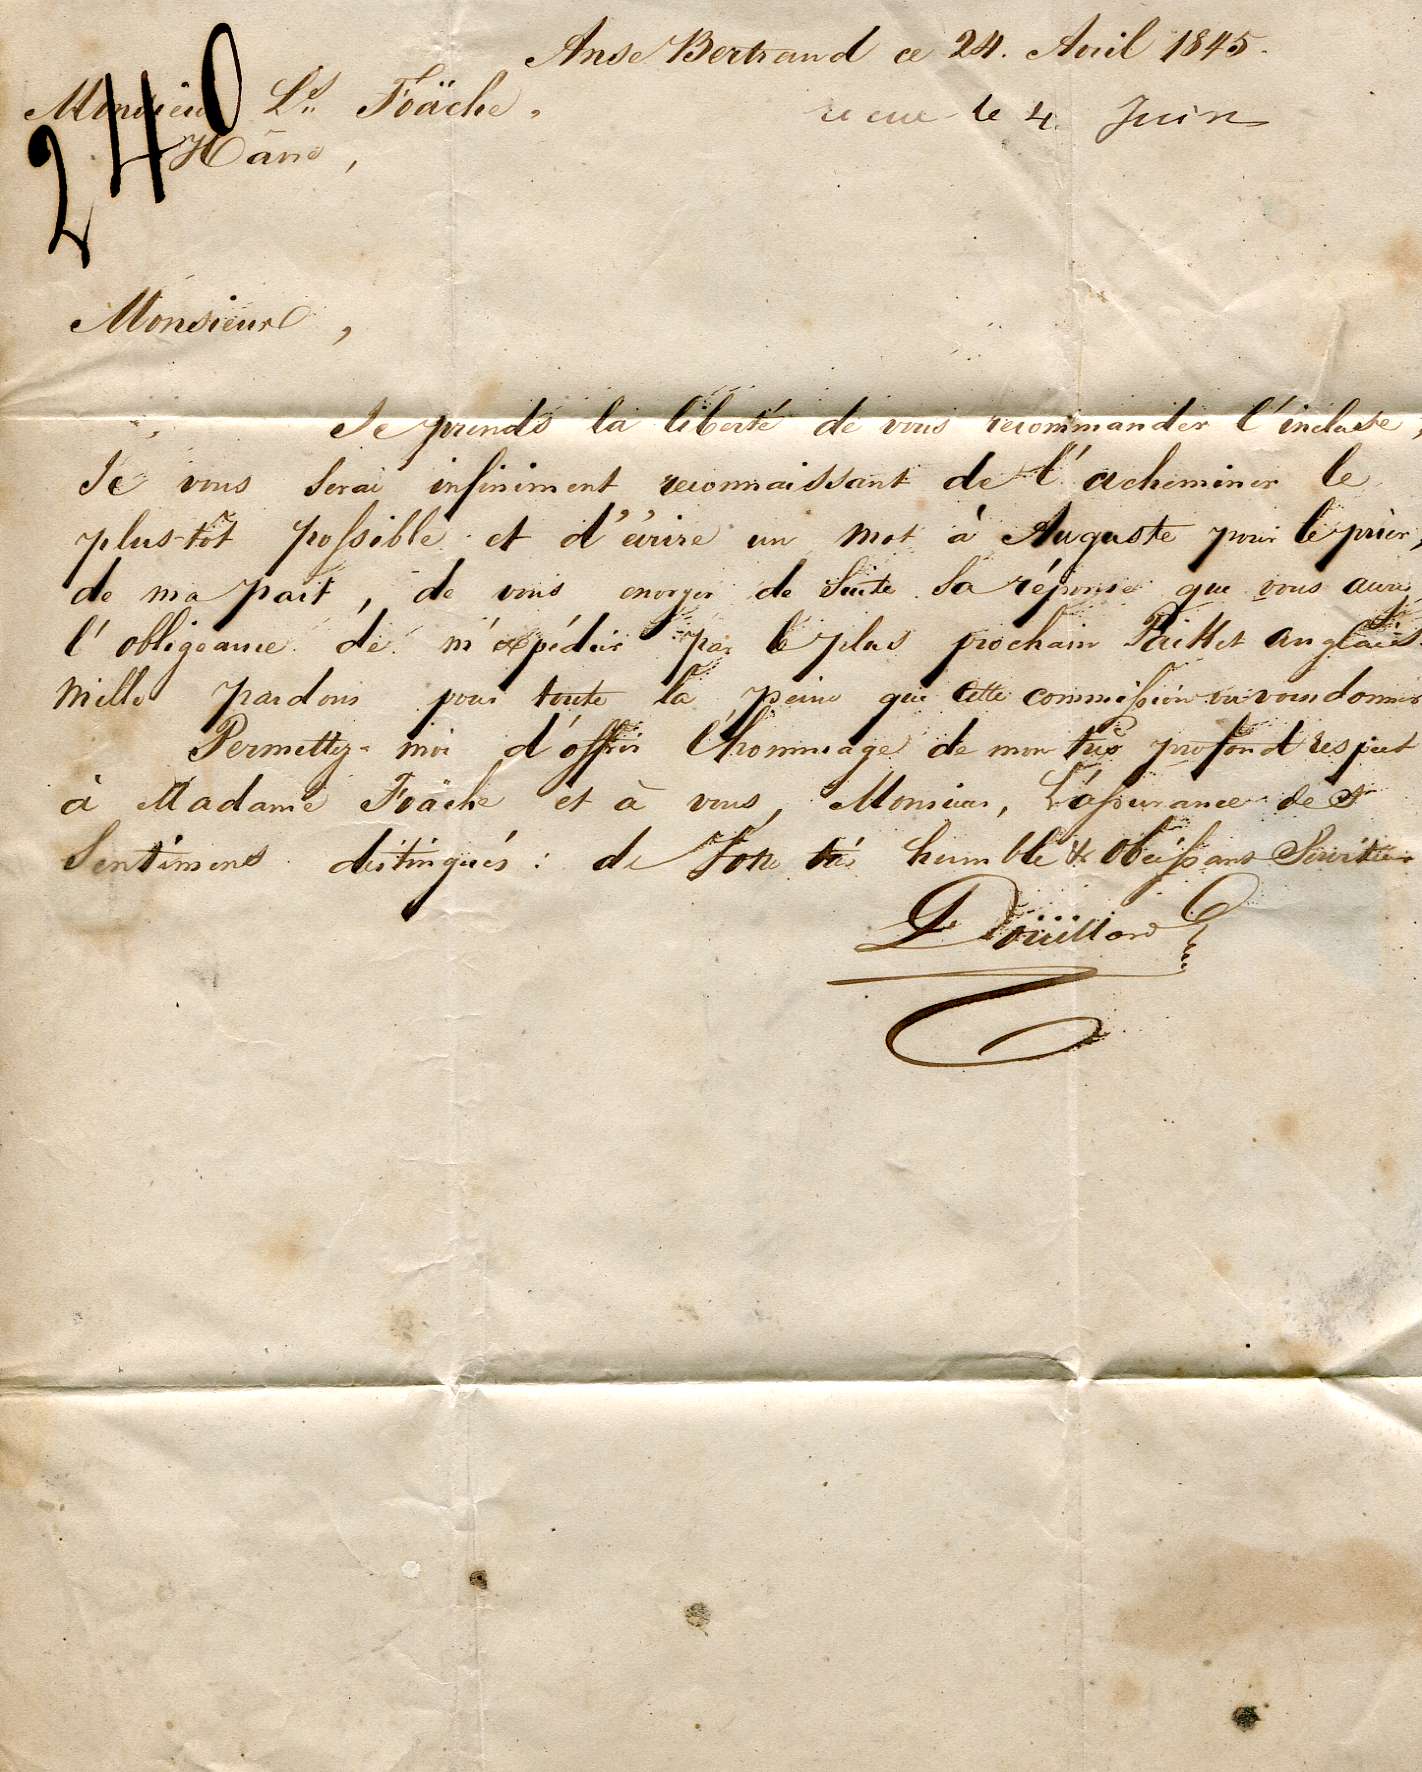 Anse Bertrand ce 24. Avril 1845.
Monsieur Ls. Foäche,
recue le 4. Juin
240
Hâvre,
Monsieur,
Je prends la liberté de vous recommander l'incluse,
Je vous serai infiniment reconnaissant de l'acheminer le
plus-tôt possible et d'écrire un mot à Auguste pour le prier,
de ma part, de vous envoyer de Suite sa réponse que vous aurez
l'obligeance de m'expédier par le plus prochain Pakket anglais.
Mille pardons pour toute la peine que cette commission va vous donner
Permettez-moi d'offrir l'hommage de mon très profond respect
à Madame Foäche et à vous, Monsieur, l'assurance des
Sentimens distingués: de Votre très humble & obéissant Serviteur
Douillard